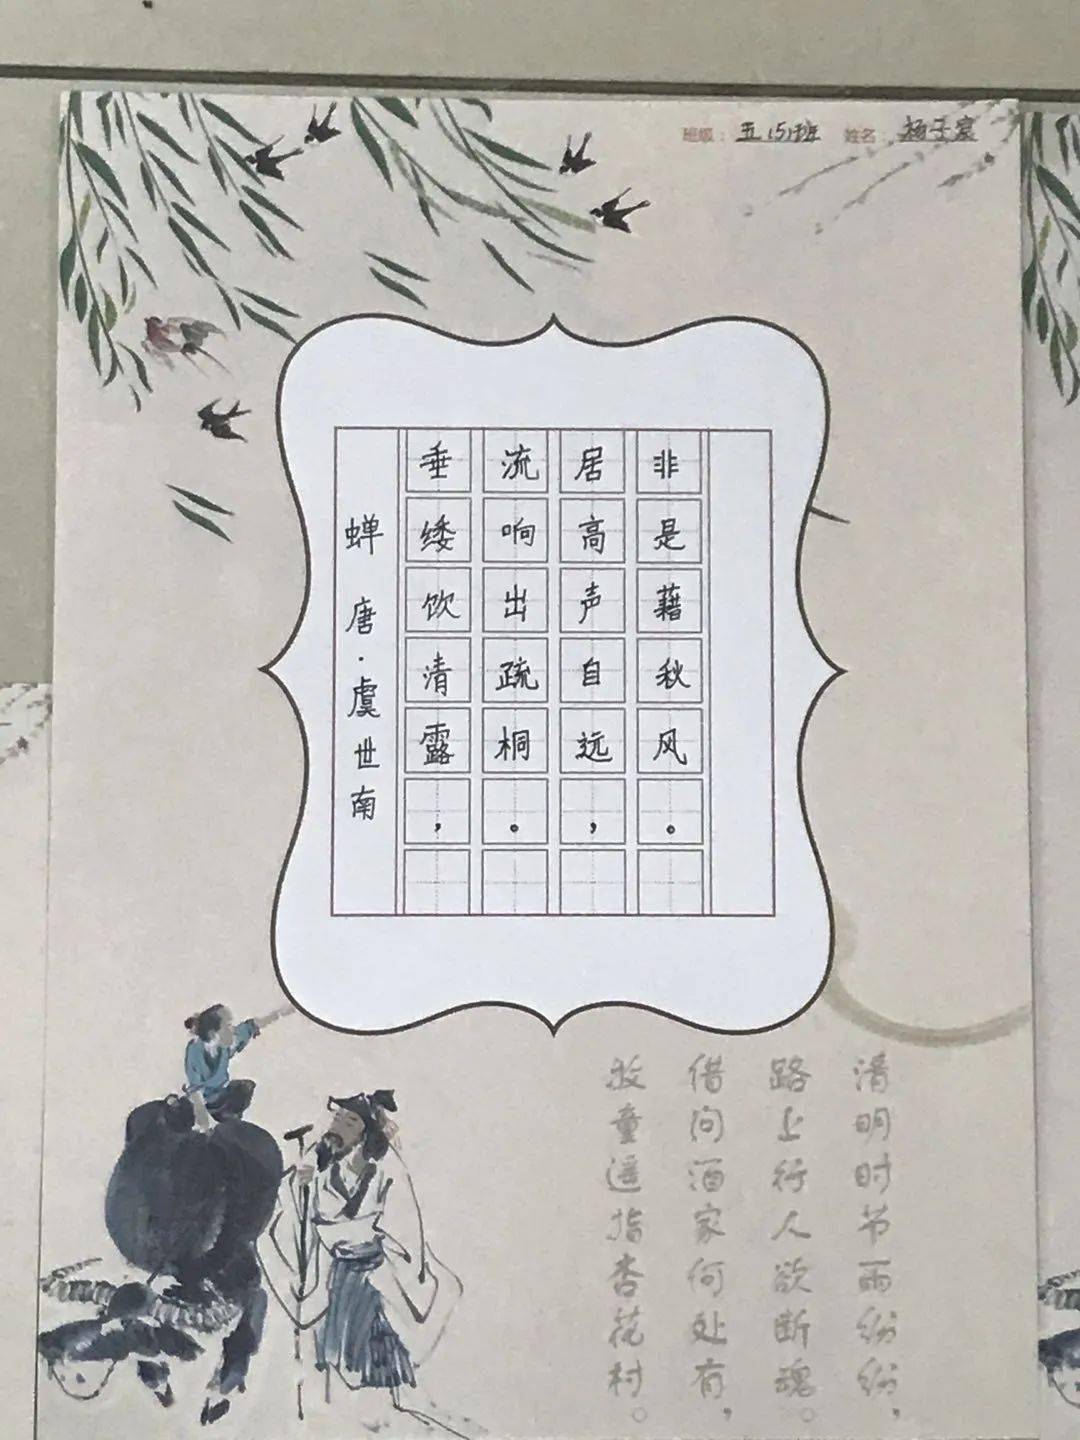 班级： 五（5）班 姓名： 杨子宸
蝉 唐·虞世南
垂緌饮清露，
流响出疏桐。
居高声自远，
非是藉秋风。
清明时节雨纷纷，
路上行人欲断魂。
借问酒家何处有，
牧童遥指杏花村。